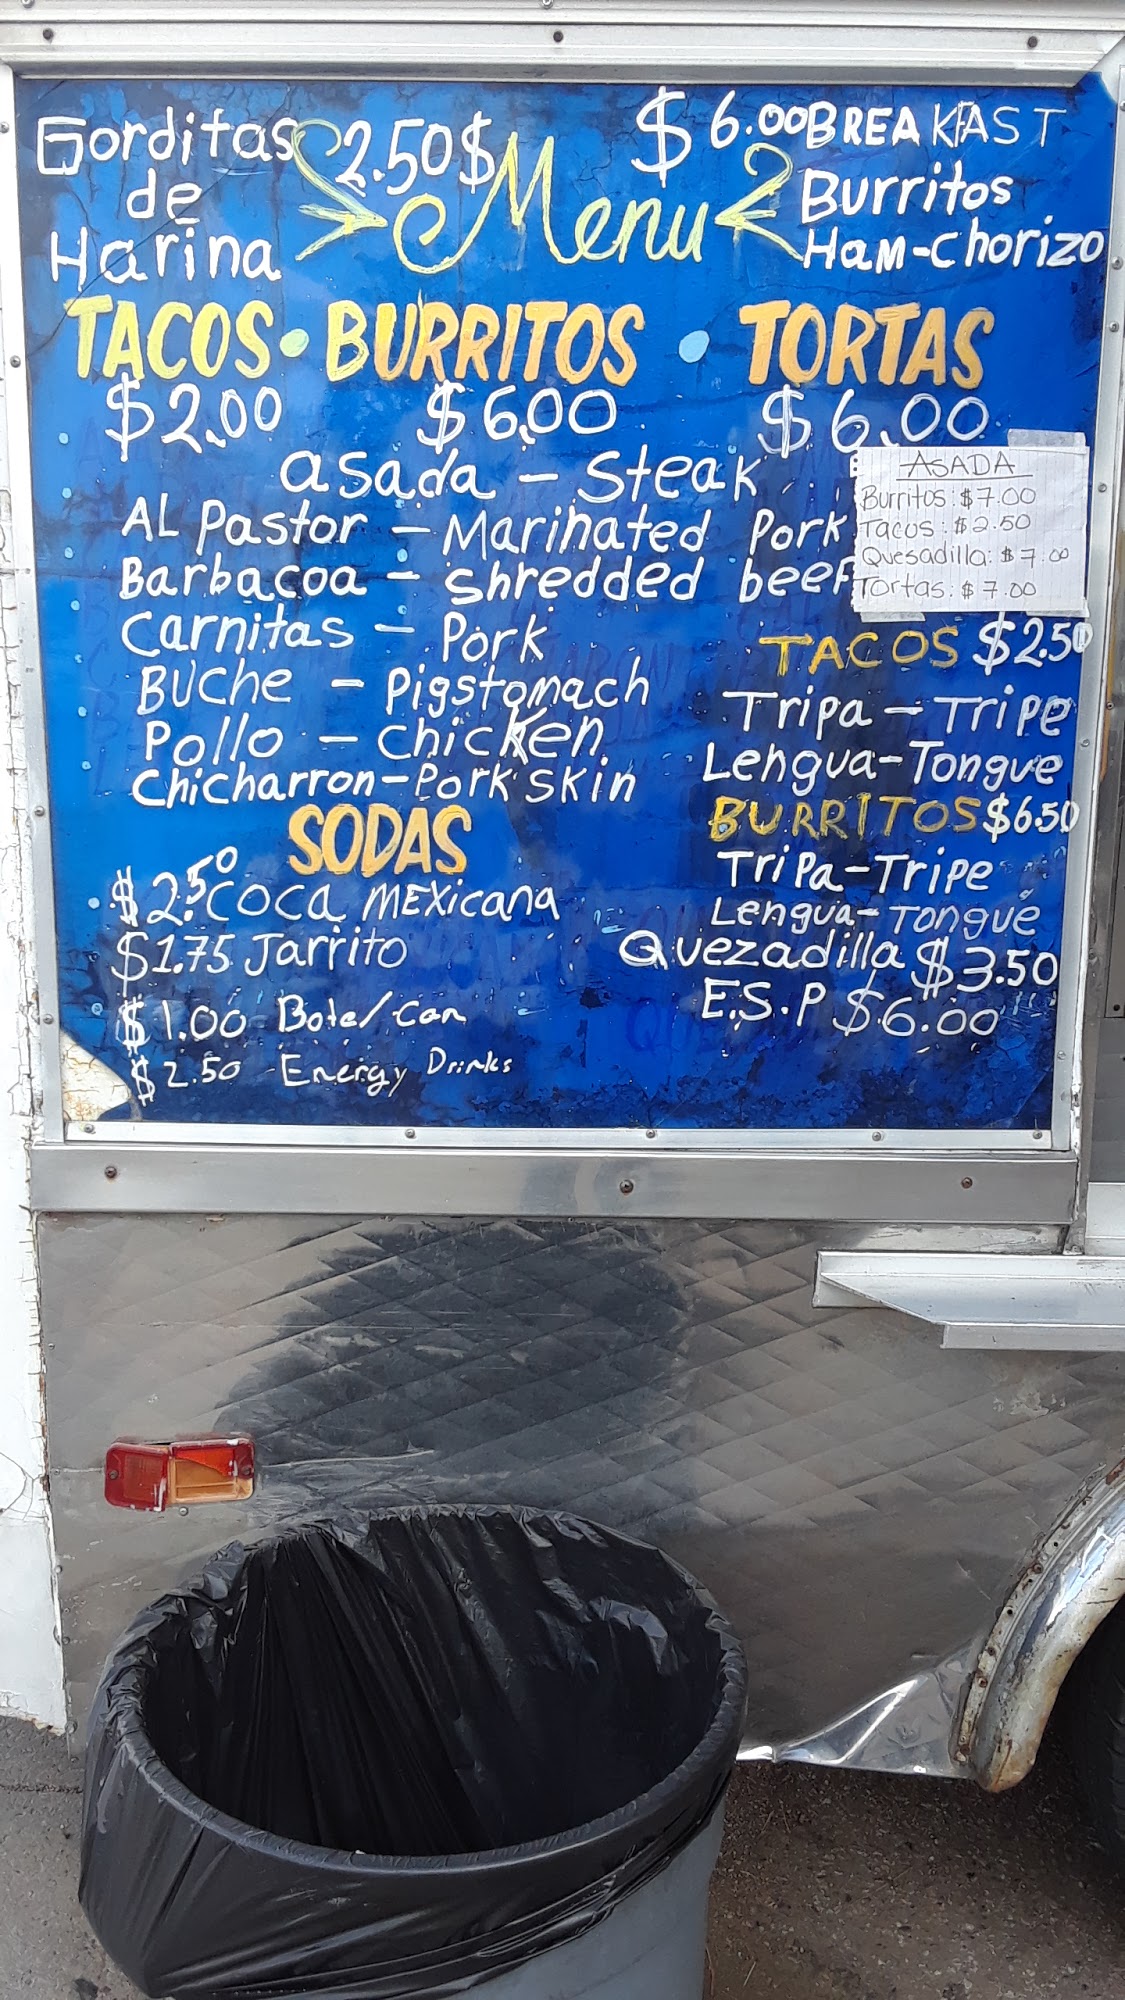 Gorditas 2.50$
de
Harina
Menu
$6.00 BREAKFAST
Burritos
HaM-Chorizo
TACOS • BURRITOS • TORTAS
$2.00 $6.00 $6.00
asada - Steak
AL Pastor - Marinated Pork
Barbacoa - Shredded beef
Carnitas - Pork
Buche - Pigstomach
Pollo - Chicken
Chicharron-Pork skin
ASADA
Burritos: $7.00
Tacos: $2.50
Quesadilla: $7.00
Tortas: $7.00
TACOS $2.50
Tripa - Tripe
Lengua-Tongue
BURRITOS $6.50
Tripa-Tripe
Lengua-Tongue
Quezadilla $3.50
E.S.P $6.00
SODAS
$2.50 COCA MEXicana
$1.75 Jarrito
$1.00 Bote/Can
$2.50 Energy Drinks